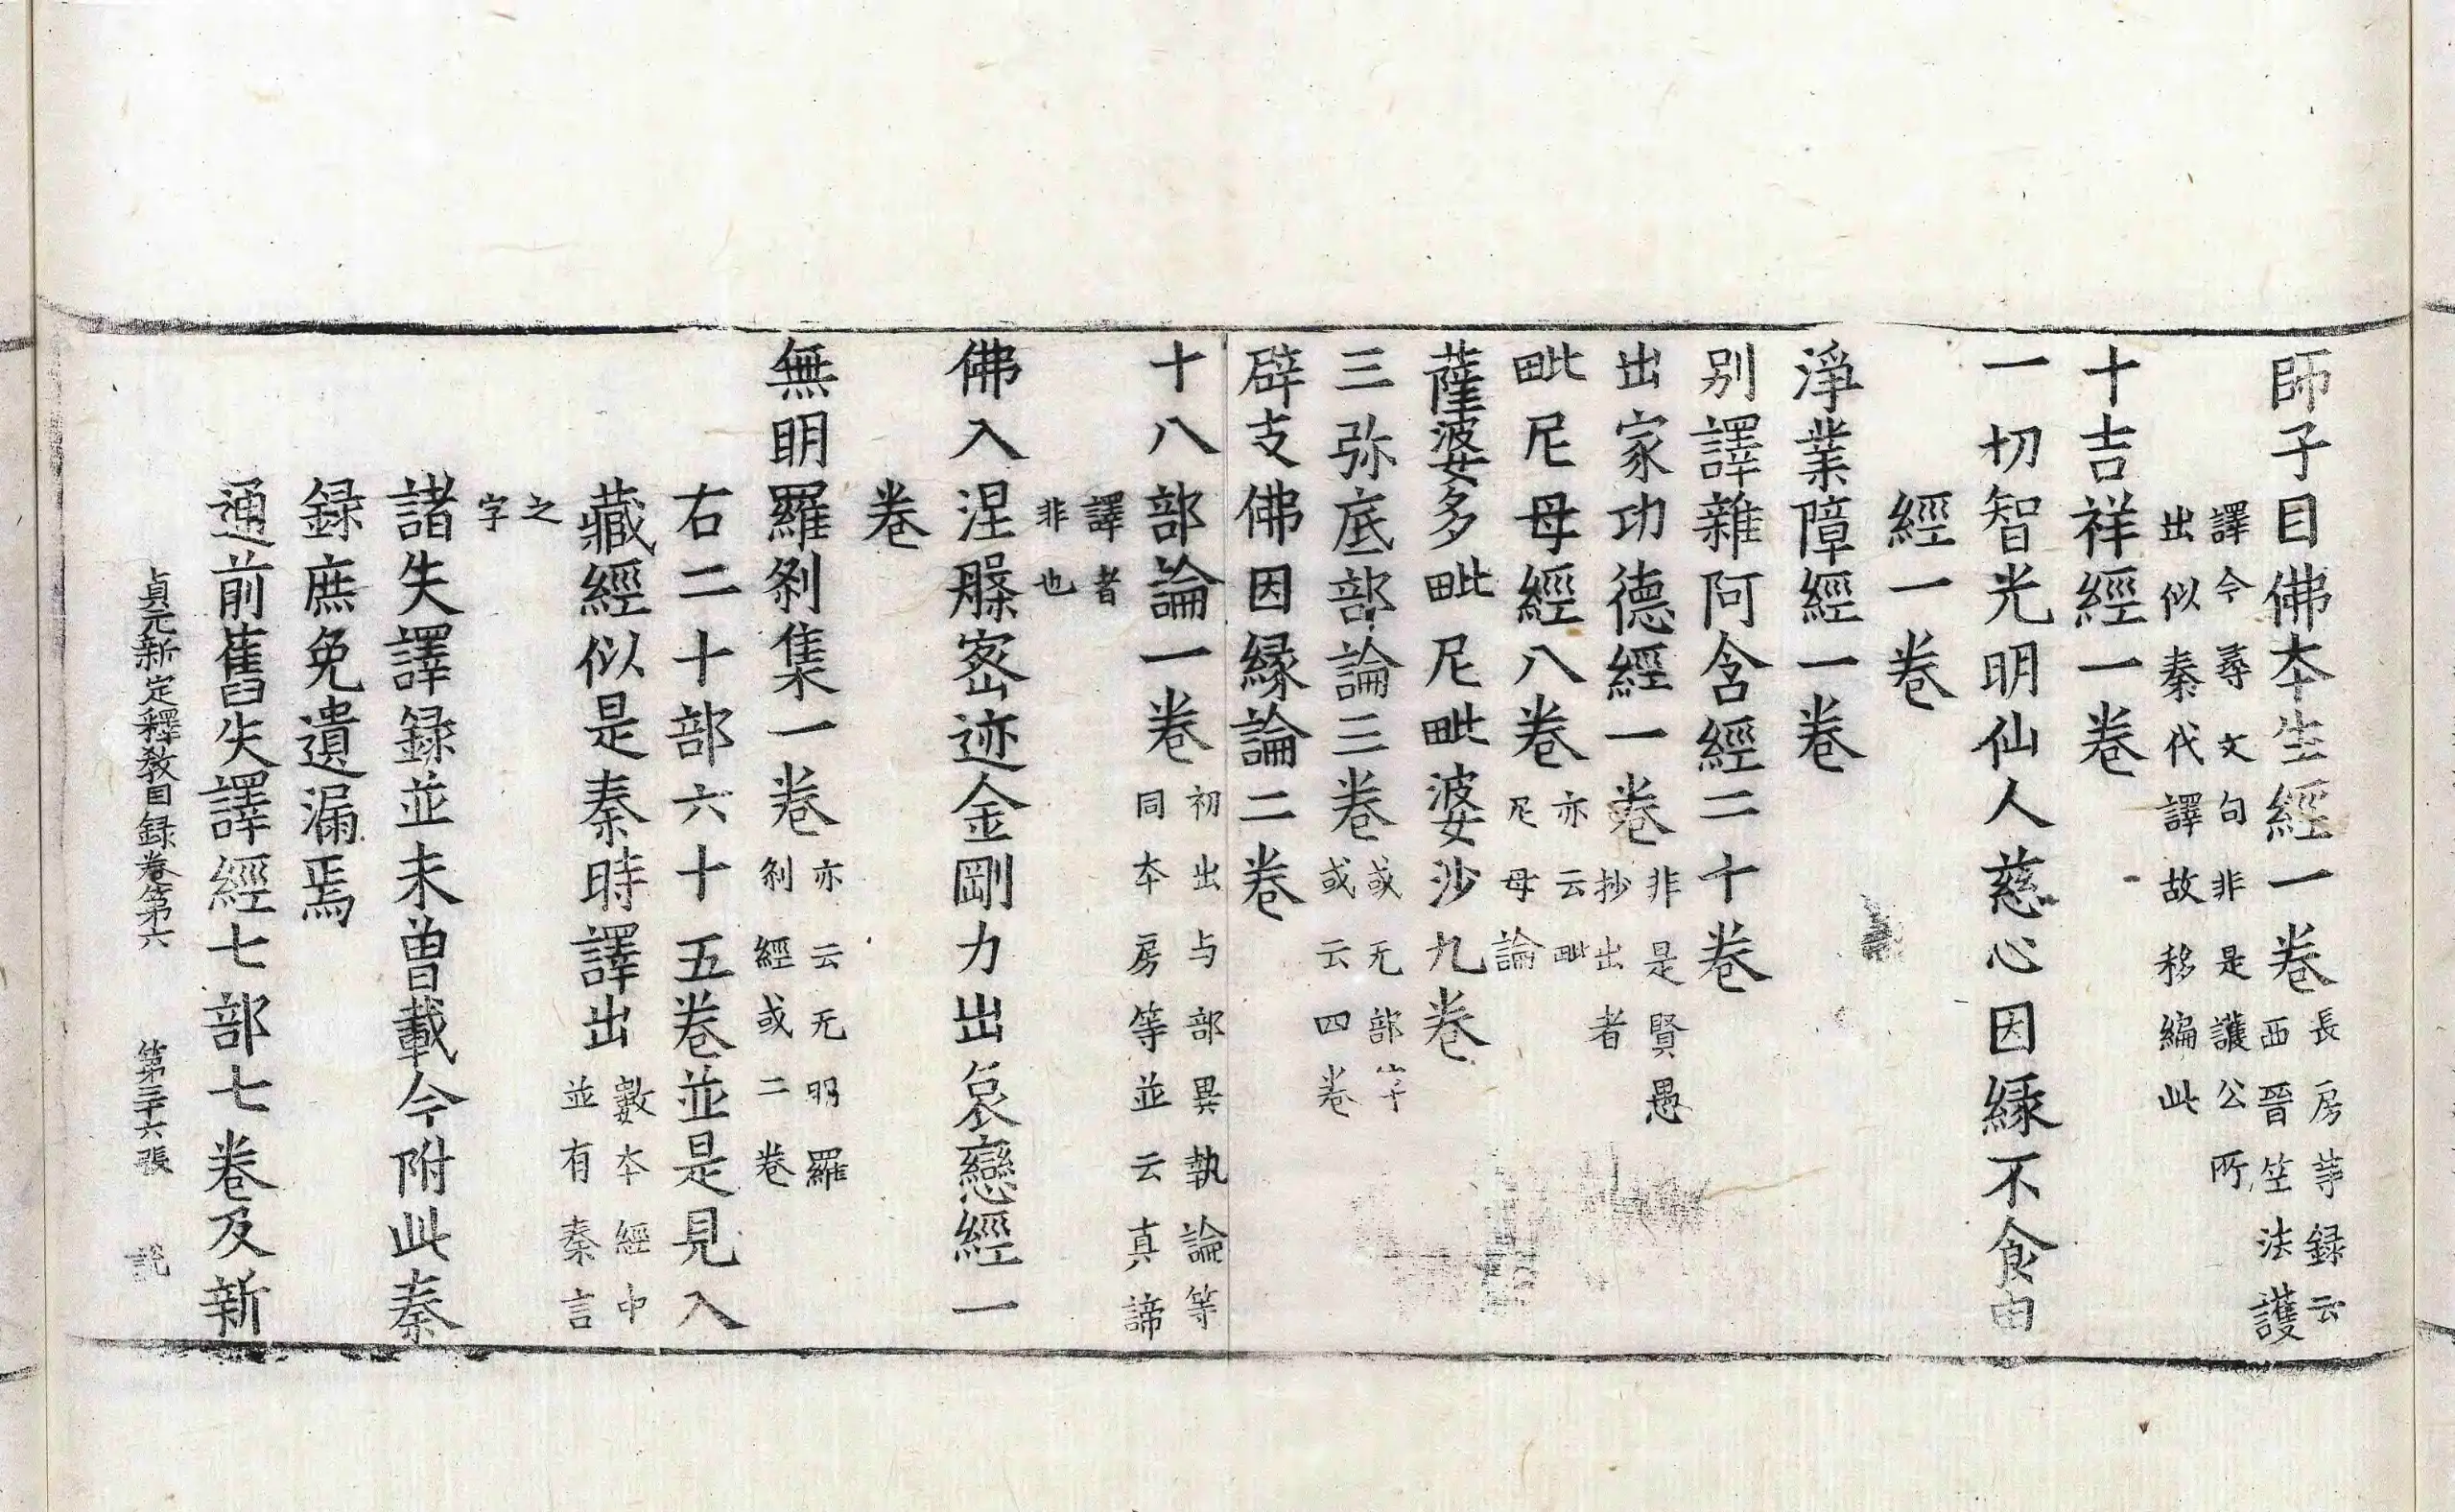 師子目佛本生經一卷長房䓁録云西晉竺法護
譯今尋文句非是護公所出似秦代譯故移編此
十吉祥經一卷
一切智光明仙人慈心因緣不食肉
經一卷
淨業障經一卷
别譯雜阿含經二十卷
出家功德經一卷非是賢愚抄出者
毗尼母經八卷亦云毗尼母論
薩婆多毗尼毗婆沙九卷
三弥底部論三卷或无部字或云四卷
辟支佛因緣論二卷
十八部論一卷初出与部異執論等同本房等並云真諦
譯者非也
佛入涅槃密迹金剛力士哀戀經一
卷
無明羅刹集一卷亦云无明羅刹經或二卷
右二十部六十五卷並是見入
藏經似是秦時譯出數本經中並有秦言
之字
諸失譯録並未曾載今附此秦
録庶免遺漏焉
通前舊失譯經七部七卷及新
貞元新定釋教目録卷第六 第三十六張